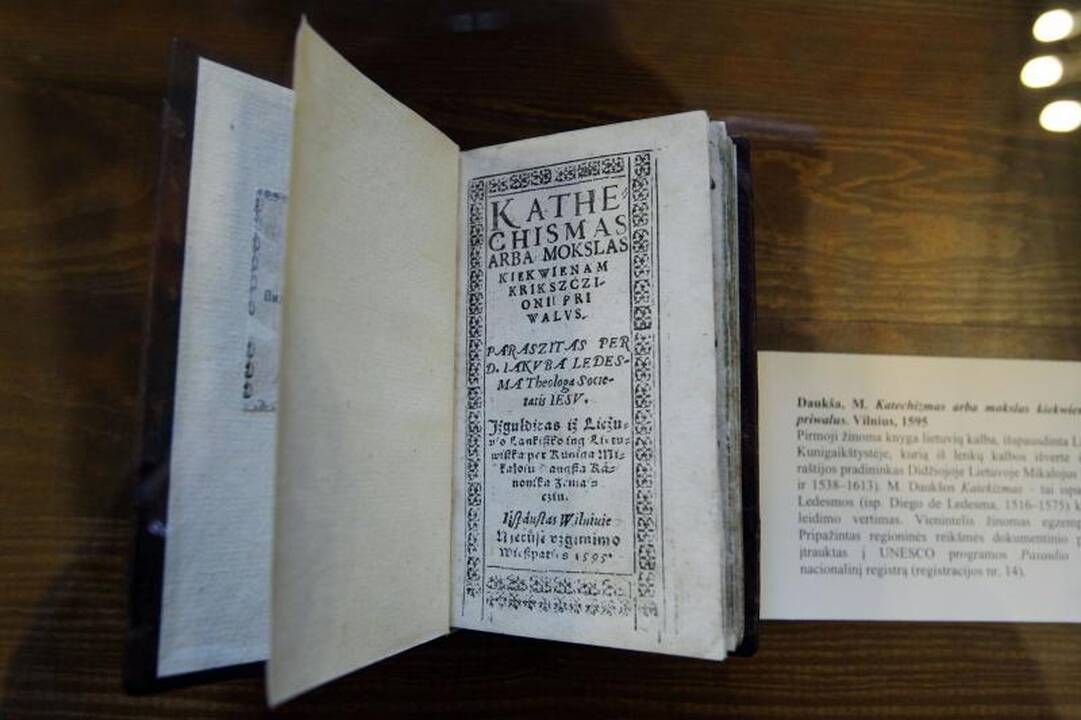 KATHE-
CHISMAS
ARBA MOKSLAS
KIEKWIENAM
KRIKSZCZI-
ONII PRI
WALVS.
PARASZITAS PER
D. IAKVBA LEDES-
MA Theologa Socie-
tatis IESV.
Iźgulditas iź Lieźu-
wio Lankiſko ing Lietu-
wiſka per Kuniga Mi-
kaloiu Daugſſa Ka-
nonika Żemai-
cziu.
Iſſduſtas Wilniuie
Nietůſe vzgimimo
Wieſzpaties 1595.
Daukša, M. Katechizmas arba mokslas kiekwie
priwalus. Vilnius, 1595
Pirmoji žinoma knyga lietuvių kalba, išspausdinta
Kunigaikštystėje, kurią iš lenkų kalbos išvertė
raštijos pradininkas Didžiojoje Lietuvoje Mikalojus
ir 1538–1613). M. Daukšos Katekizmas – tai ispa
Ledesmos (isp. Diego de Ledesma, 1516–1575)
leidimo vertimas. Vienintelis žinomas egzemp
Pripažintas regioninės reikšmės dokumentinio
įtrauktas į UNESCO programos Pasaulio
nacionalinį registrą (registracijos nr. 14).